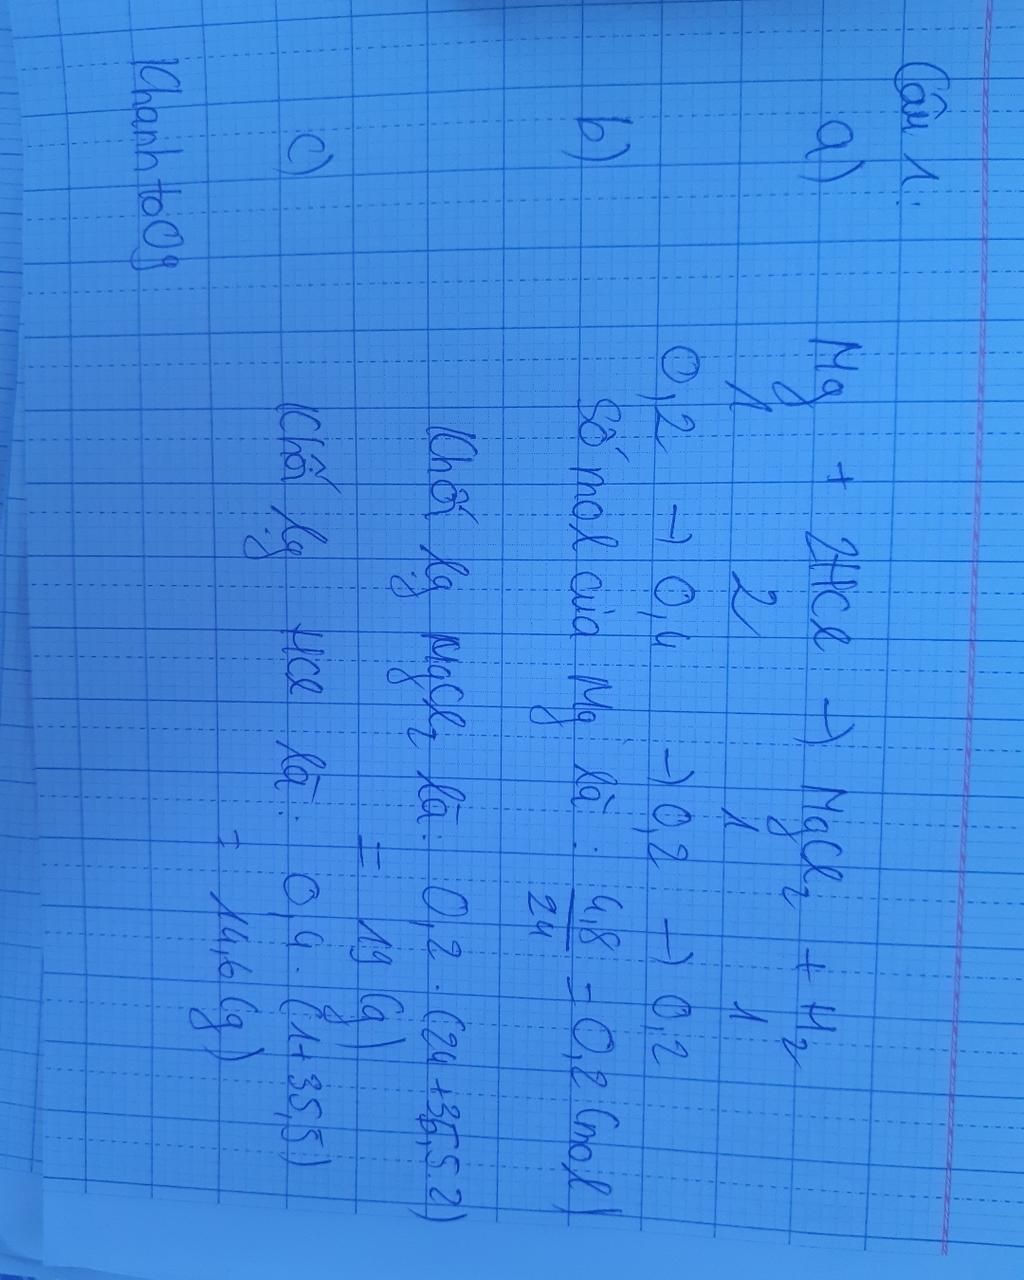 Câu 1:
a) Mg + 2HCl → MgCl₂ + H₂
1 2 1 1
0,2 → 0,4 → 0,2 → 0,2
b) Số mol của Mg là: 4,8/24 = 0,2 (mol)
Khối lg MgCl₂ là: 0,2 . (24+35,5.2)
= 19 (g)
c) Khối lg HCl là: 0,4 . (1+35,5)
= 14,6 (g)